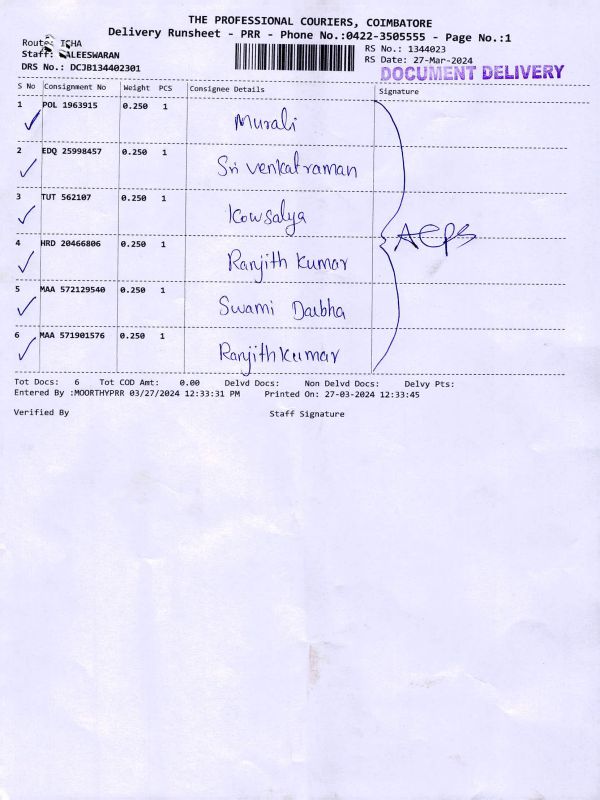 THE PROFESSIONAL COURIERS, COIMBATORE
Delivery Runsheet - PRR - Phone No.:0422-3505555 - Page No.:1
Route: ISHA
Staff: ALEESWARAN
DRS No.: DCJB134402301
RS No.: 1344023
RS Date: 27-Mar-2024
DOCUMENT DELIVERY
S No Consignment No Weight PCS Consignee Details Signature
1 POL 1963915 0.250 1 Murali
2 EDQ 25998457 0.250 1 Sri venkatraman
3 TUT 562107 0.250 1 Kowsalya
4 HRD 20466806 0.250 1 Ranjith Kumar
5 MAA 572129540 0.250 1 Swami Daibha
6 MAA 571901576 0.250 1 Ranjith Kumar
Tot Docs: 6 Tot COD Amt: 0.00 Delvd Docs: Non Delvd Docs: Delvy Pts:
Entered By :MOORTHYPRR 03/27/2024 12:33:31 PM Printed On: 27-03-2024 12:33:45
Verified By Staff Signature